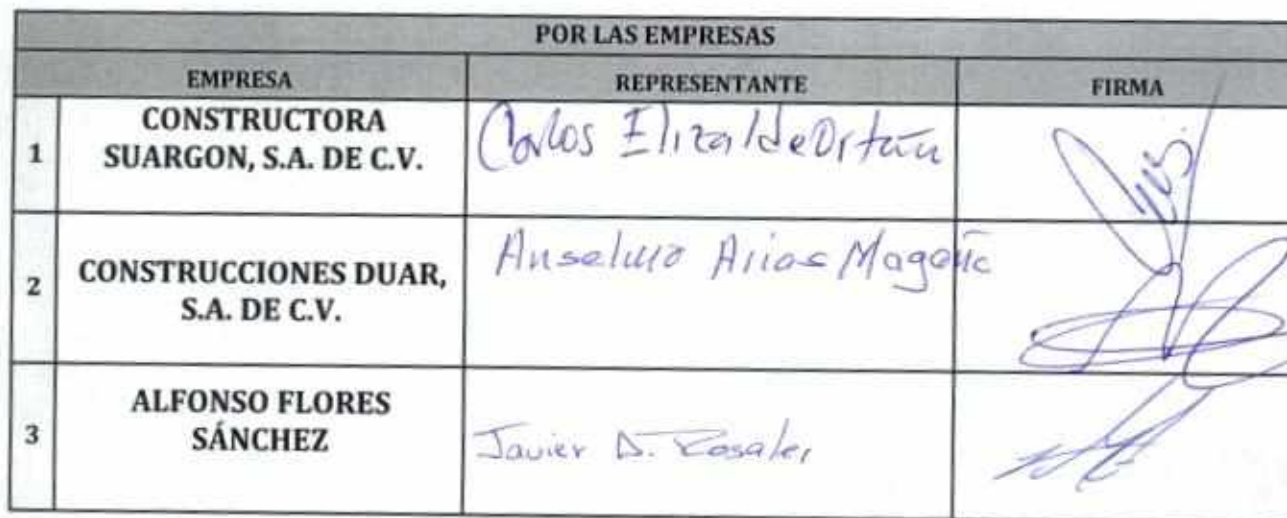 POR LAS EMPRESAS
EMPRESA REPRESENTANTE FIRMA
1 CONSTRUCTORA SUARGON, S.A. DE C.V. Carlos Elizalde Ortún
2 CONSTRUCCIONES DUAR, S.A. DE C.V. Anselmo Arias Magaña
3 ALFONSO FLORES SÁNCHEZ Javier D. Rosales